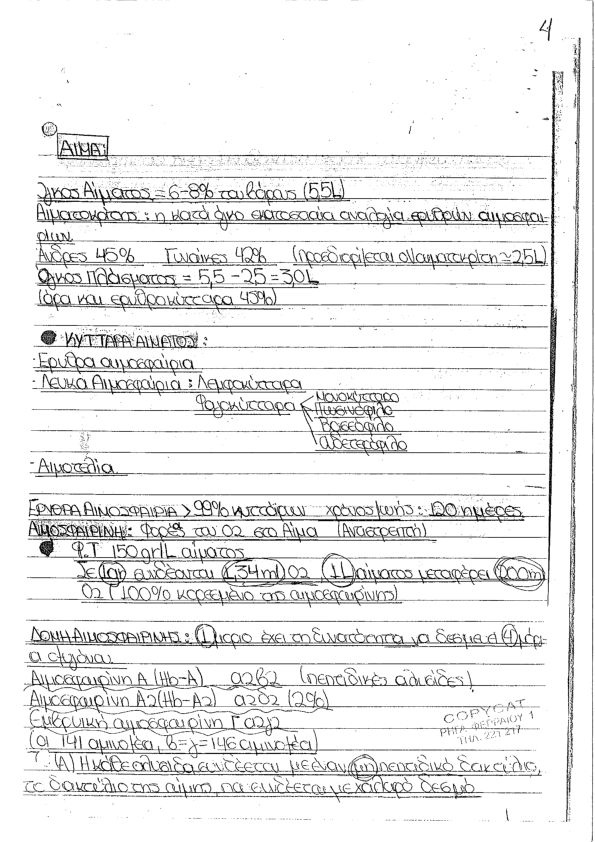 4
ΑΙΜΑ:
Όγκος Αίματος = 6-8% του βάρους (5,5L)
Αιματοκρίτης: η κατά όγκο εκατοστιαία αναλογία ερυθρών αιμοσφαι-
ρίων
Άνδρες 45% Γυναίκες 42% (προσδιορίζεται ο αιματοκρίτη ≃ 2,5L)
Όγκος Πλάσματος = 5,5 - 2,5 = 3,0L
(άρα και ερυθροκύτταρα 45%)
ΚΥΤΤΑΡΑ ΑΙΜΑΤΟΣ:
- Ερυθρα αιμοσφαίρια
- Λευκα Αιμοσφαίρια: Λεμφοκύτταρα
Φαγοκύτταρα Μονοκύτταρο
Ηωσινόφιλο
Βασεόφιλο
Ουδετερόφιλο
- Αιμοπετάλια
ΕΡΥΘΡΑ ΑΙΜΟΣΦΑΙΡΙΑ > 99% κυττάρων χρόνος ζωής: 120 ημέρες
ΑΙΜΟΣΦΑΙΡΙΝΗ: Φορέας του O2 στο Αίμα (Αντιστρεπτή)
Φ.Τ 150gr/L αίματος
Σε 1gr συνδέονται 1,34ml O2 1L αίματος μεταφέρει 200ml
O2 (100% κορεσμένο της αιμοσφαιρίνης)
ΔΟΜΗ ΑΙΜΟΣΦΑΙΡΙΝΗΣ: 1 μόριο έχει τη δυνατότητα να δεσμεύσει 4 μόρι-
α οξυγόνου
Αιμοσφαιρίνη Α (Hb-A) α2β2 (πεπτιδικές αλυσίδες)
Αιμοσφαιρίνη Α2 (Hb-A2) α2δ2 (2%)
Εμβρυική αιμοσφαιρίνη F α2γ2
(α 141 αμινοξέα, β=γ=146 αμινοξέα)
(Α) Η κάθε αλυσίδα συνδέεται με έναν μη πεπτιδικό δακτύλιο,
το δακτύλιο της αίμης, που συνδέεται με χαλαρό δεσμό
COPYCAT
ΡΗΓΑ ΦΕΡΡΑΙΟΥ 1
ΤΗΛ. 221 217